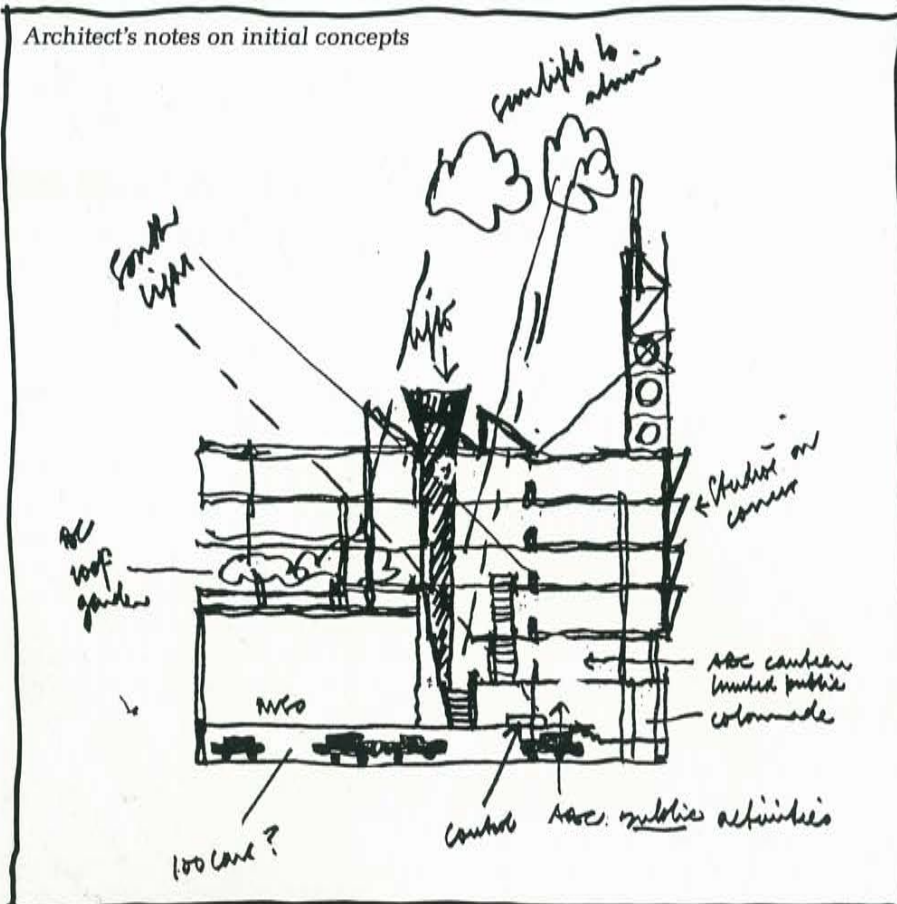 Architect's notes on initial concepts
sunlight to
South
light
lifts
Studios on
corner
ABC
roof
garden
ABC canteen
limited public
colonnade
control
ABC public activities
100 cars?